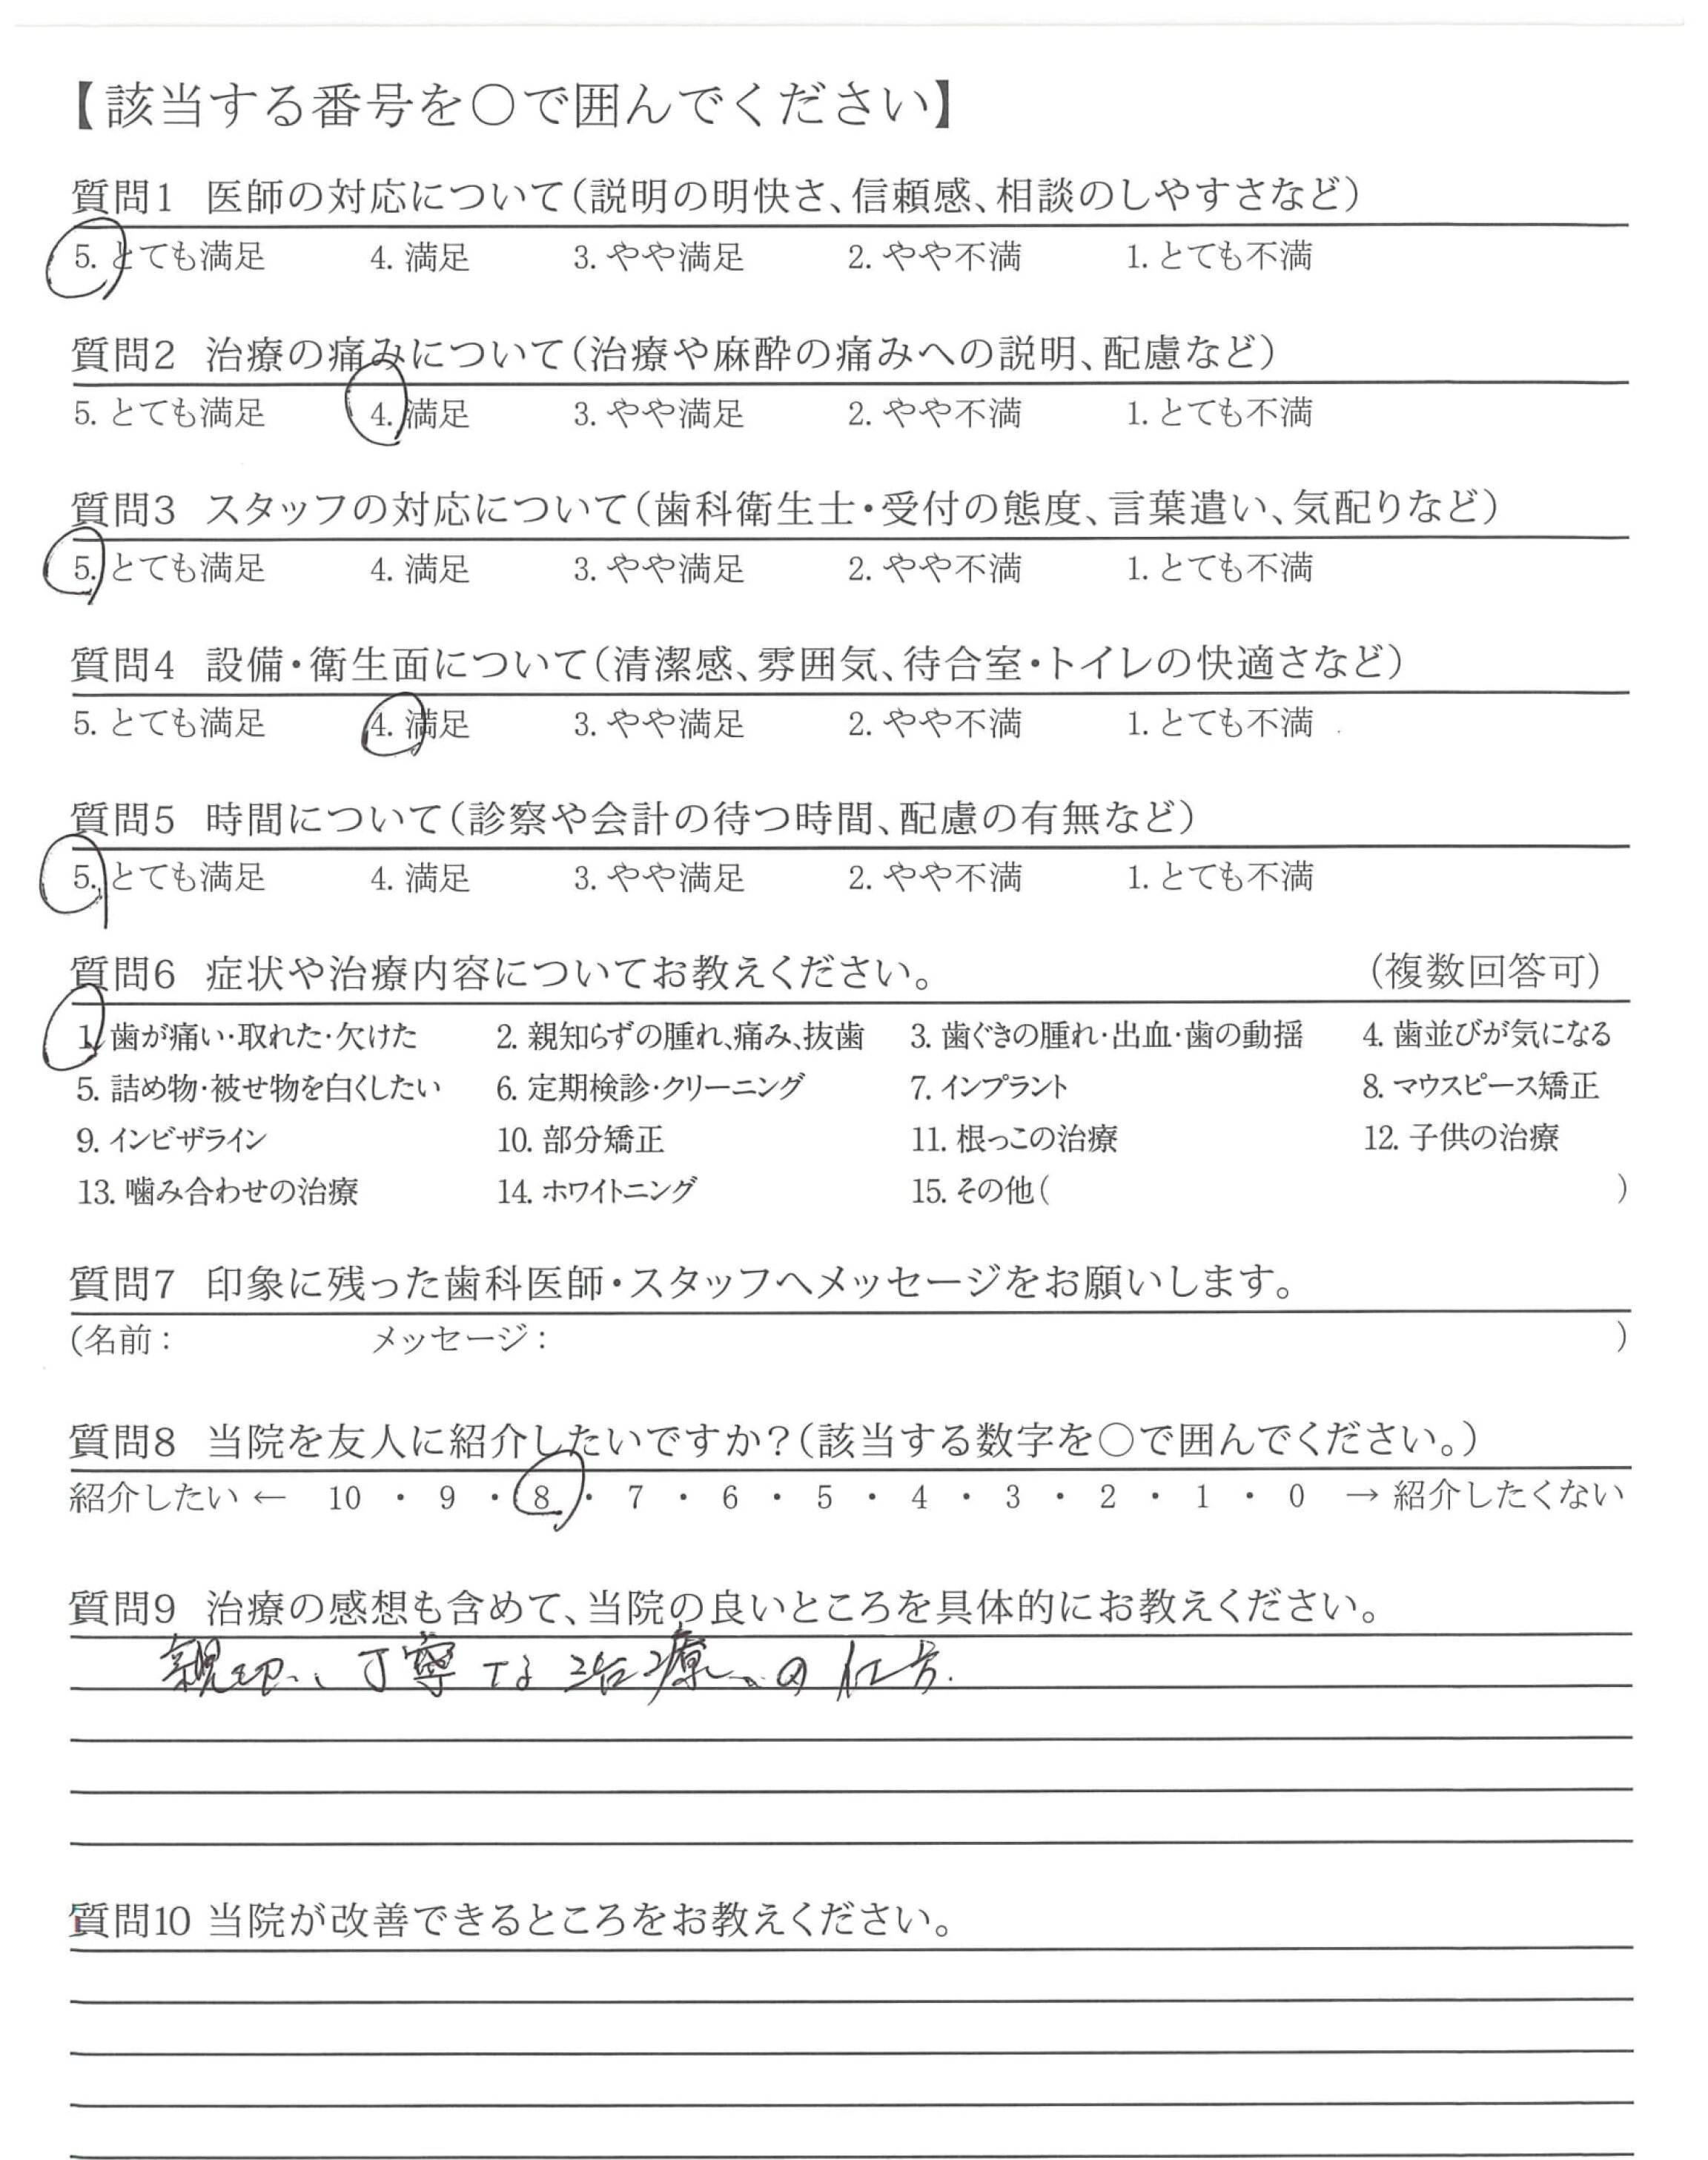 【該当する番号を〇で囲んでください】
質問1 医師の対応について(説明の明快さ、信頼感、相談のしやすさなど)
5. とても満足 4. 満足 3. やや満足 2. やや不満 1. とても不満
質問2 治療の痛みについて(治療や麻酔の痛みへの説明、配慮など)
5. とても満足 4. 満足 3. やや満足 2. やや不満 1. とても不満
質問3 スタッフの対応について(歯科衛生士・受付の態度、言葉遣い、気配りなど)
5. とても満足 4. 満足 3. やや満足 2. やや不満 1. とても不満
質問4 設備・衛生面について(清潔感、雰囲気、待合室・トイレの快適さなど)
5. とても満足 4. 満足 3. やや満足 2. やや不満 1. とても不満
質問5 時間について(診察や会計の待つ時間、配慮の有無など)
5. とても満足 4. 満足 3. やや満足 2. やや不満 1. とても不満
質問6 症状や治療内容についてお教えください。 (複数回答可)
1. 歯が痛い・取れた・欠けた 2. 親知らずの腫れ、痛み、抜歯 3. 歯ぐきの腫れ・出血・歯の動揺 4. 歯並びが気になる
5. 詰め物・被せ物を白くしたい 6. 定期検診・クリーニング 7. インプラント 8. マウスピース矯正
9. インビザライン 10. 部分矯正 11. 根っこの治療 12. 子供の治療
13. 噛み合わせの治療 14. ホワイトニング 15. その他( )
質問7 印象に残った歯科医師・スタッフへメッセージをお願いします。
(名前: メッセージ: )
質問8 当院を友人に紹介したいですか?(該当する数字を〇で囲んでください。)
紹介したい ← 10 ・ 9 ・ 8 ・ 7 ・ 6 ・ 5 ・ 4 ・ 3 ・ 2 ・ 1 ・ 0 → 紹介したくない
質問9 治療の感想も含めて、当院の良いところを具体的にお教えください。
親切、丁寧な治療への仕方.
質問10 当院が改善できるところをお教えください。